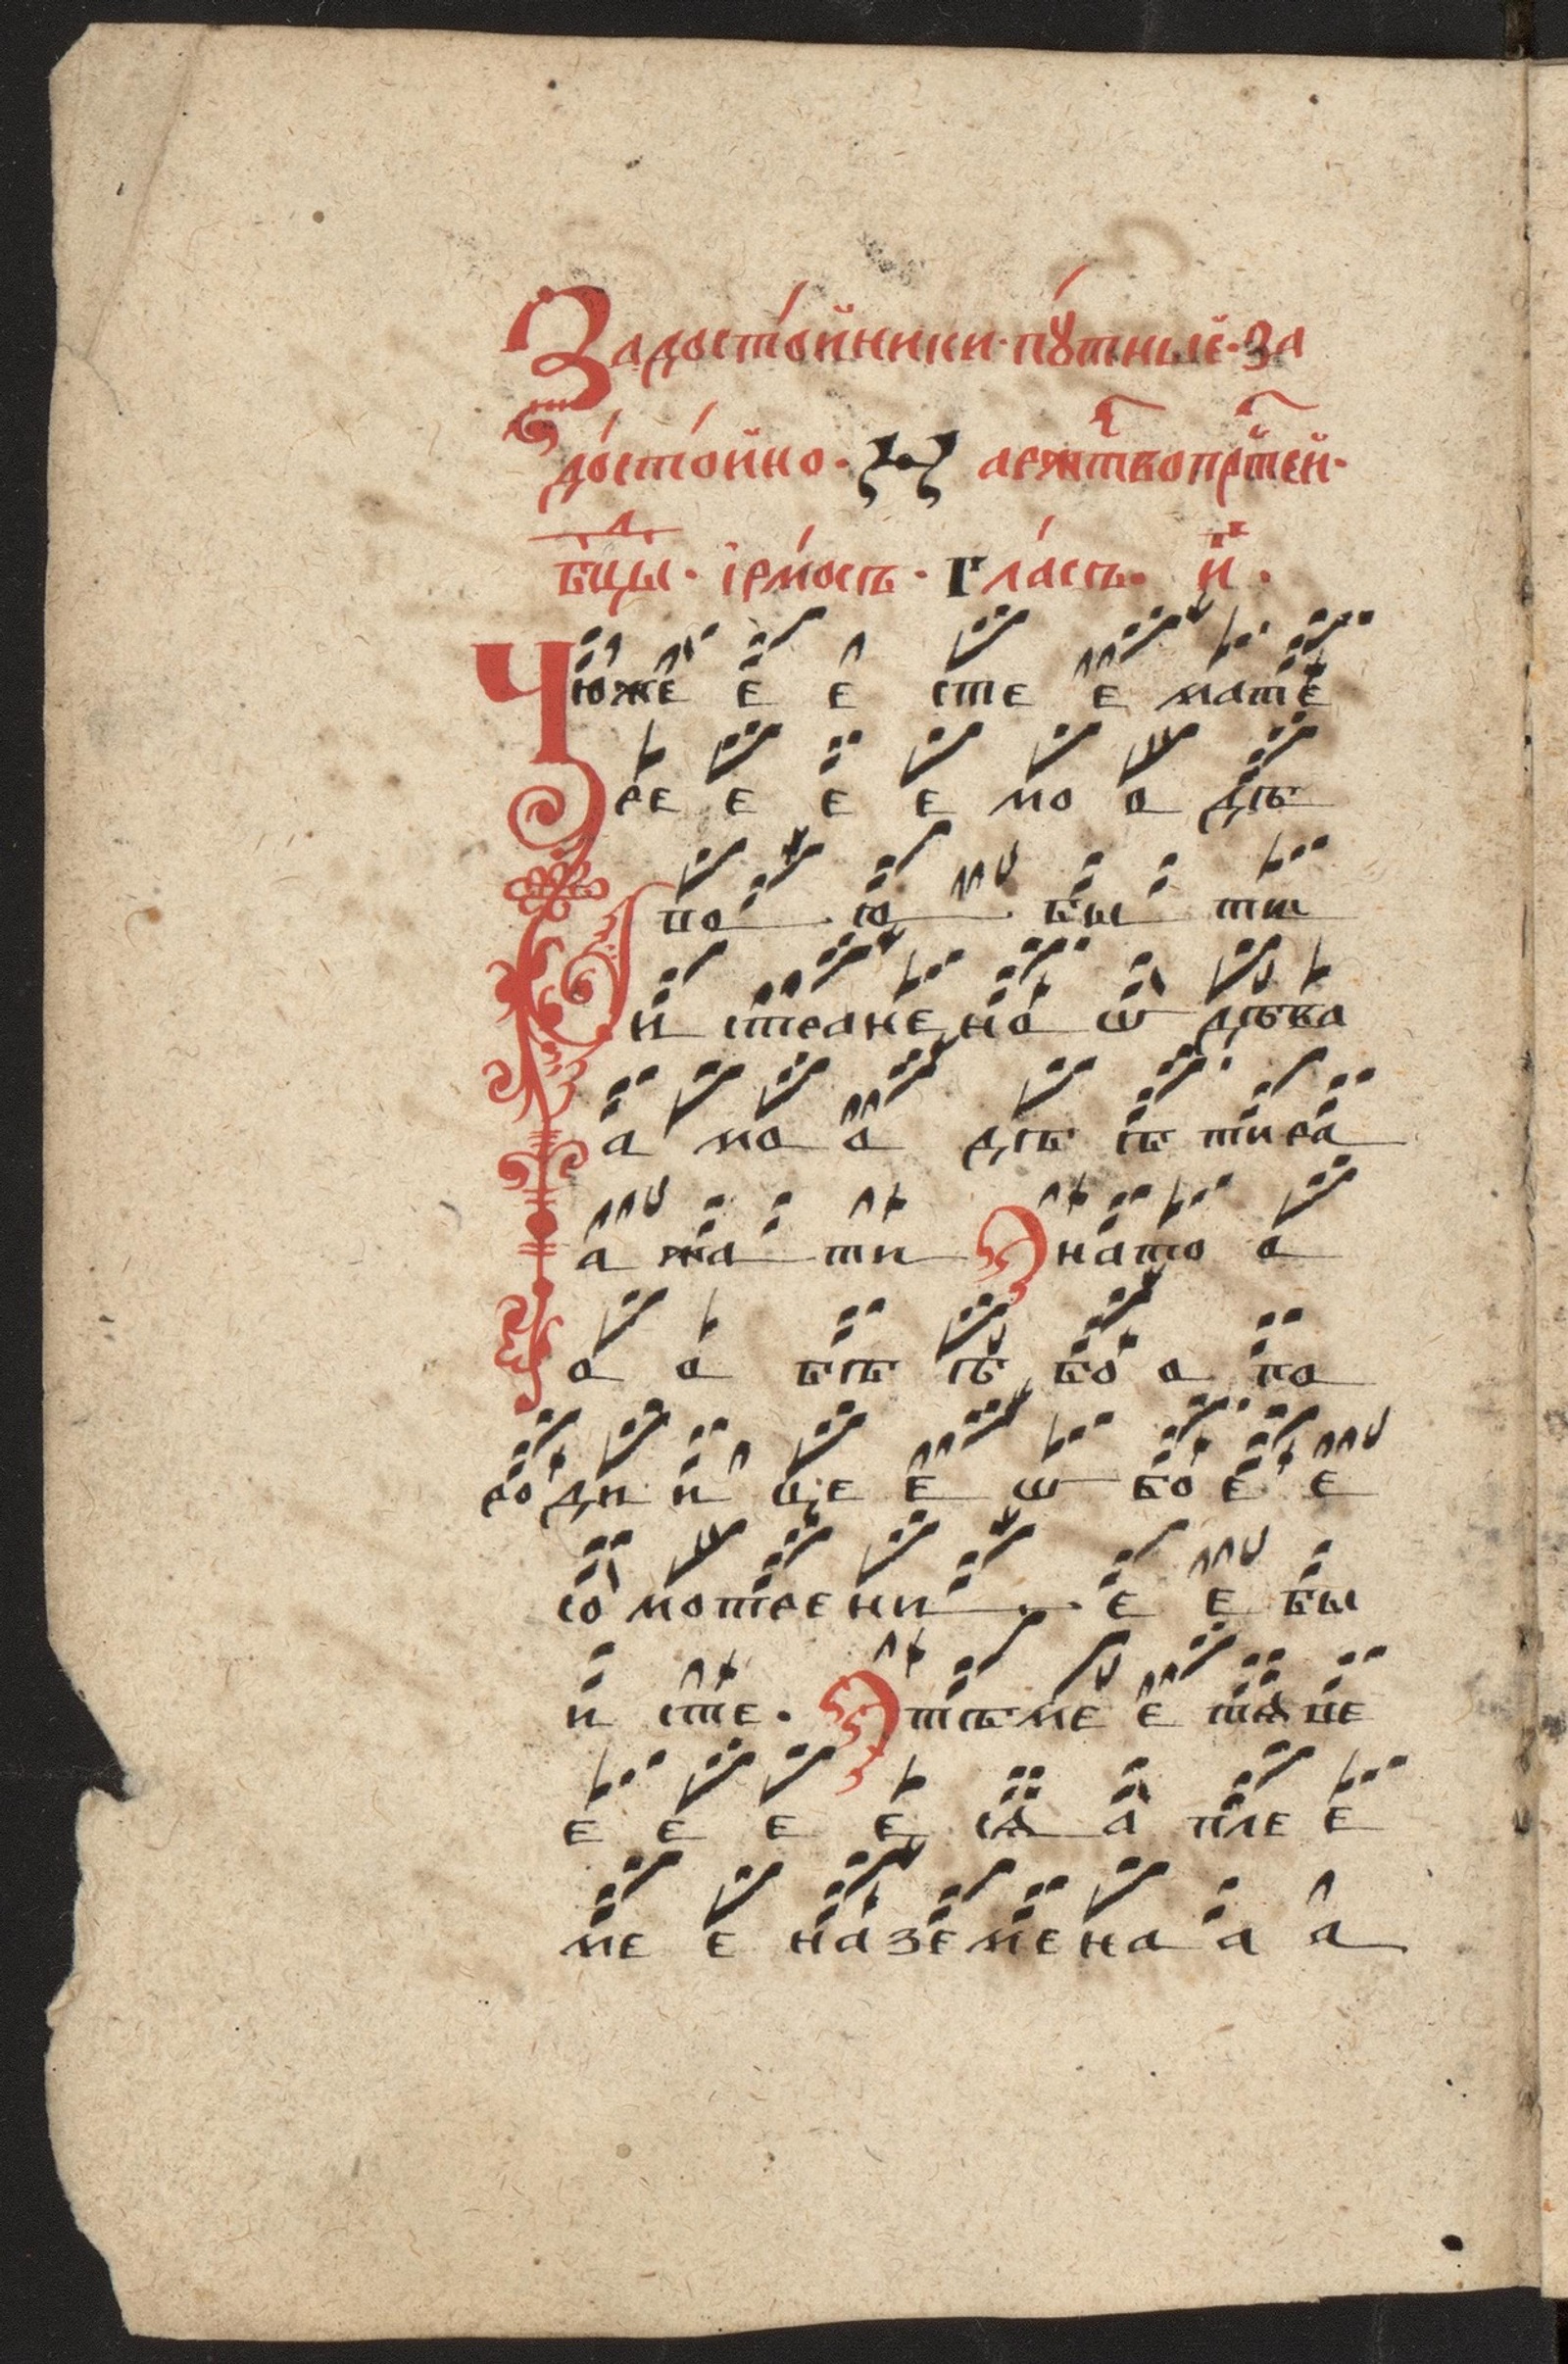 Задосто́йники· пꙋ́тныѐ· за
до́сто́йно· арж҇твопрⷭ҇тей·
бц҃ы· і҆рмо́съ· Гла́съ· и҃·
Чюже е е сте е мате
ре е е е мо о дѣ
по со бы ти
И странено ѿ дѣва
а мо о дѣ ѣ тира
а жа ти Она то о
о о бѣ ѣ бо о по
роди и це е ѡ бо е е
со мотрени е е бы
и сте· Отѣме е тѧ пе
е е е е сѧ а пле е
ме е наземена а а